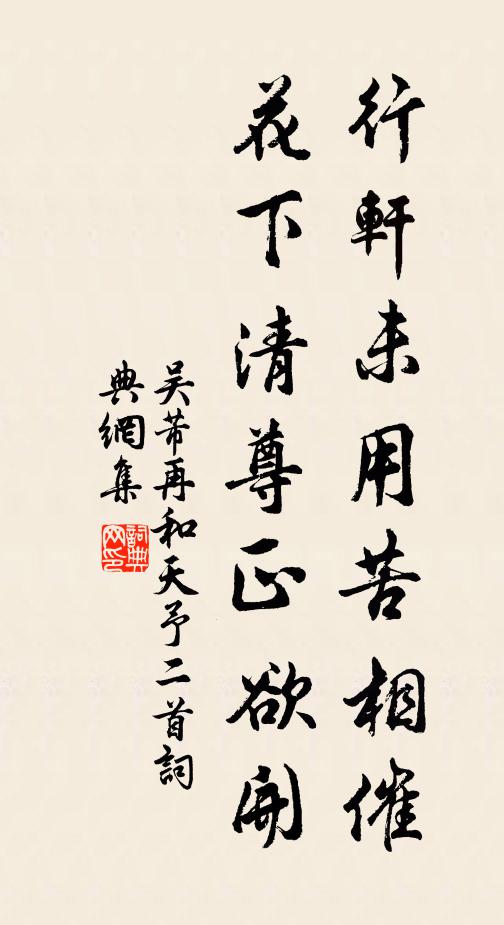 行軒未用苦相催
花下清尊正欲開
吴芾再和天予二首詞
典網集
詞典網印